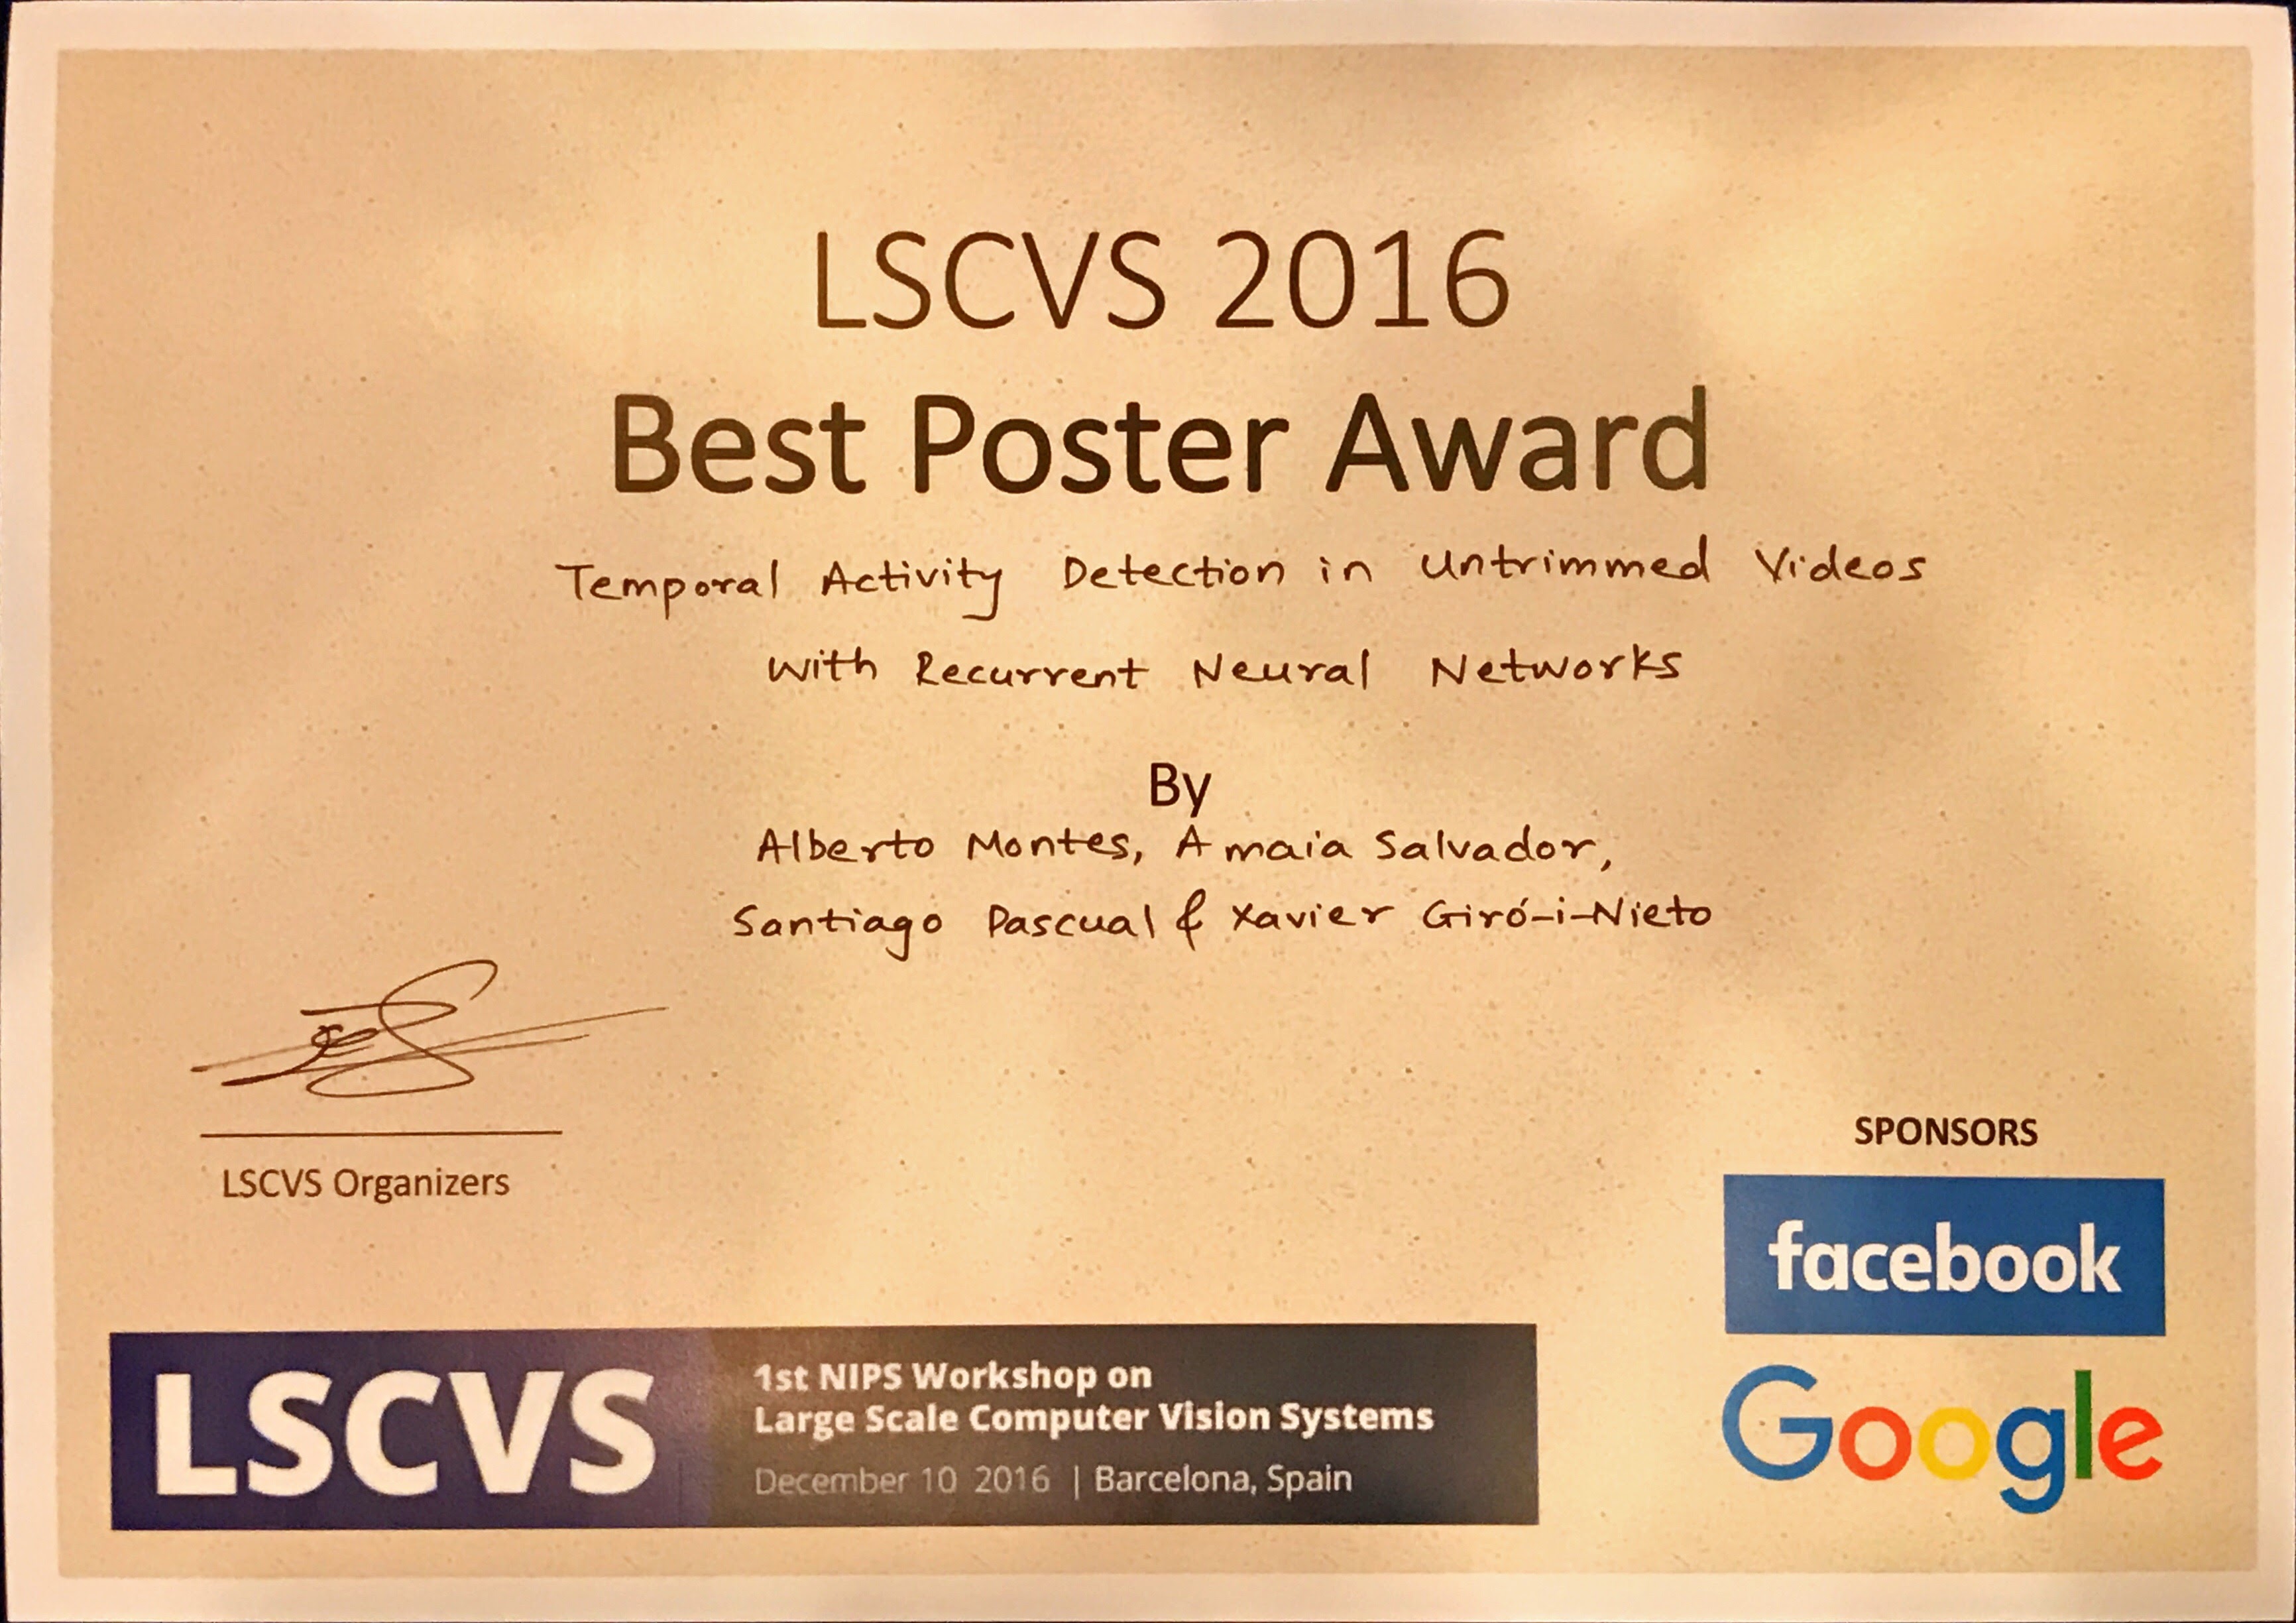 LSCVS 2016
Best Poster Award
Temporal Activity Detection in Untrimmed Videos
with Recurrent Neural Networks
By
Alberto Montes, Amaia Salvador,
Santiago Pascual & Xavier Giró-i-Nieto
LSCVS Organizers
SPONSORS
facebook
Google
LSCVS
1st NIPS Workshop on
Large Scale Computer Vision Systems
December 10 2016 | Barcelona, Spain